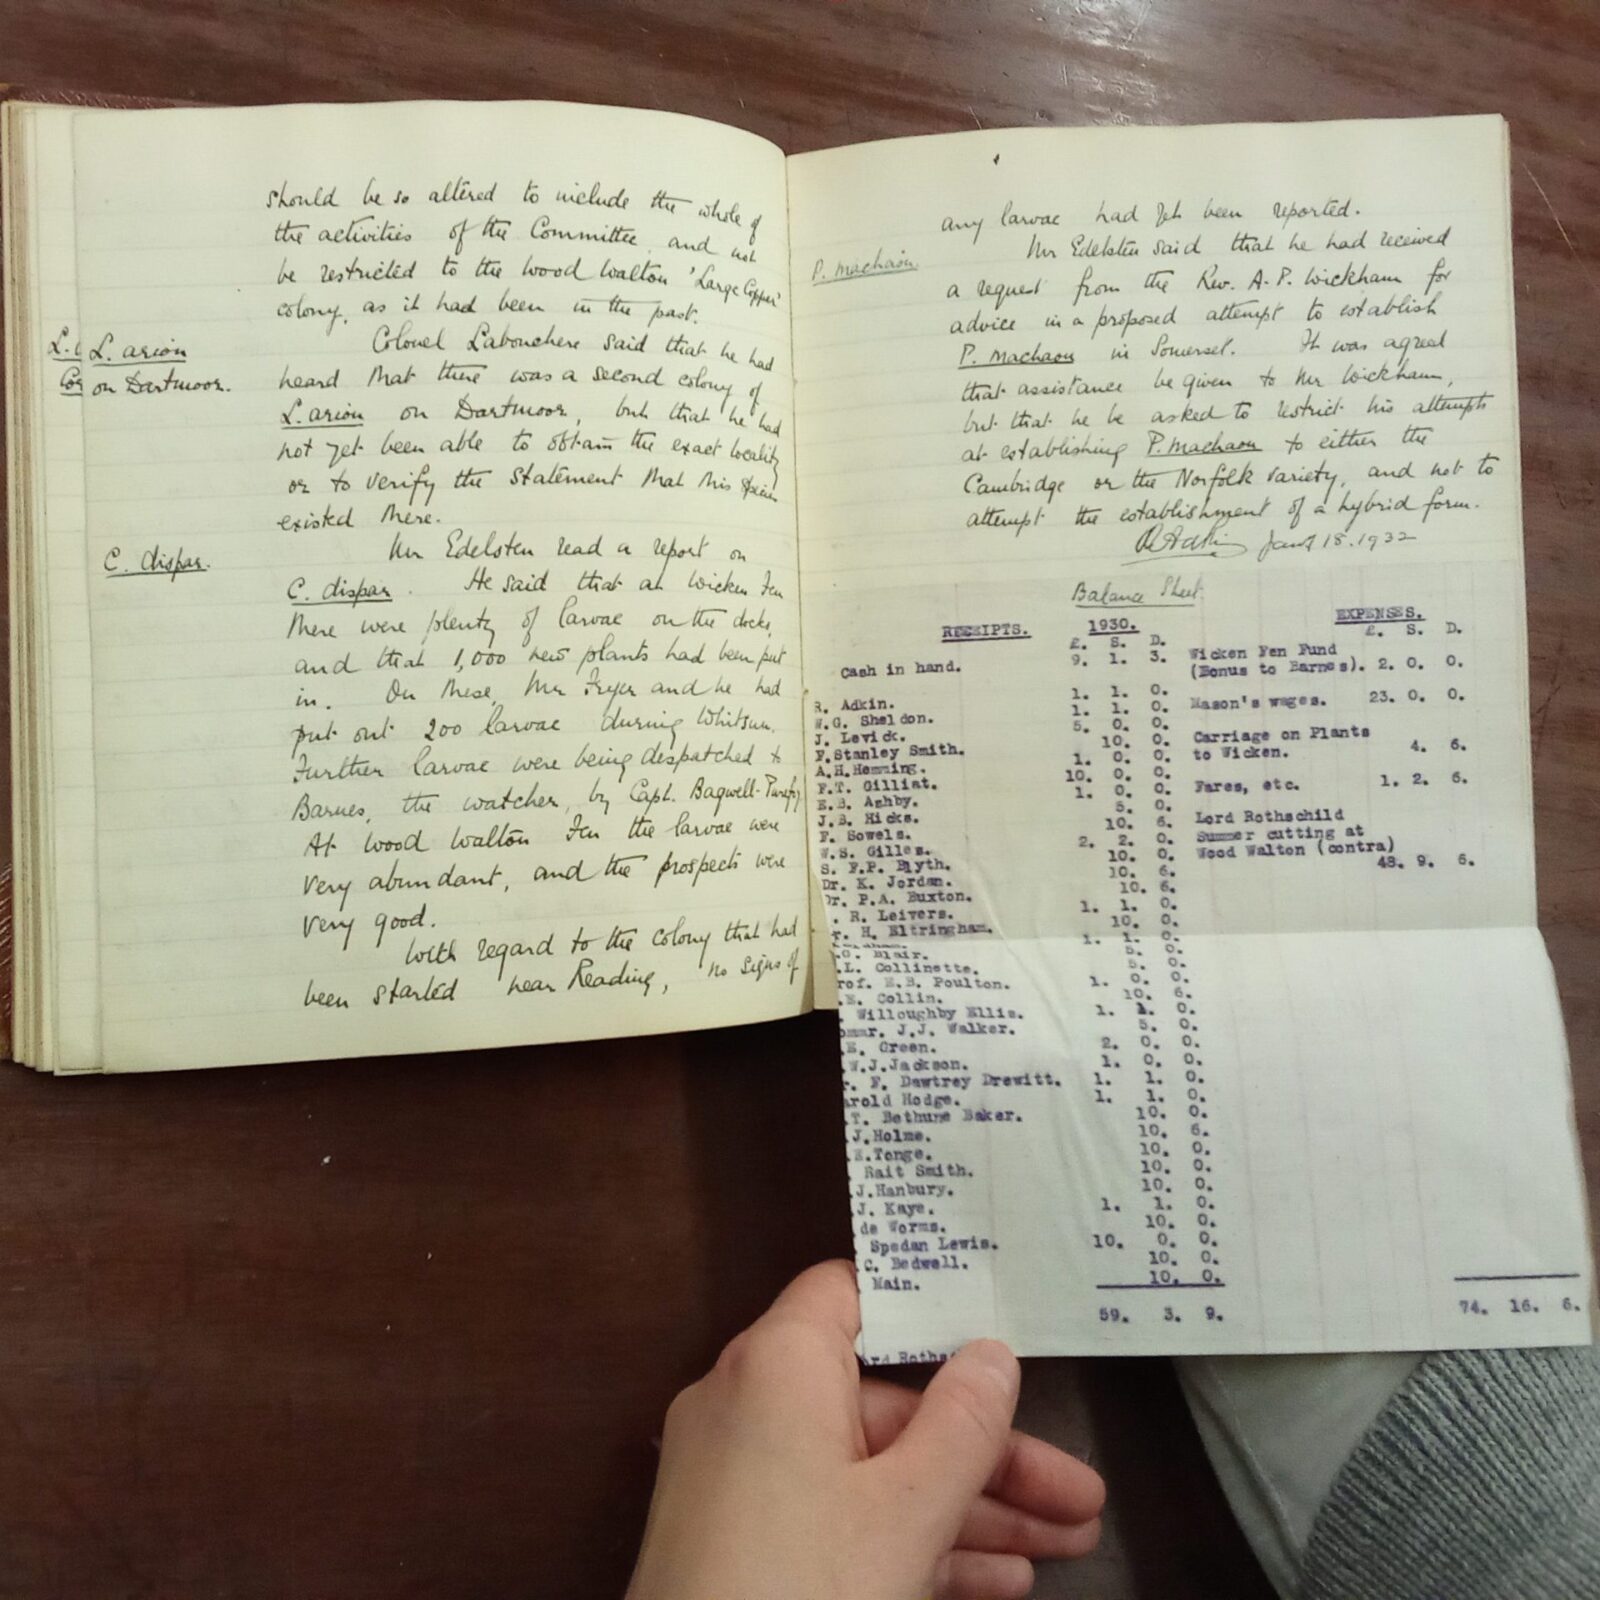 should be so altered to include the whole of
the activities of the Committee, and not
be restricted to the Wood Walton 'Large Copper'
colony, as it had been in the past.
L. arion
on Dartmoor.
Colonel Labouchere said that he had
heard that there was a second colony of
L. arion on Dartmoor, but that he had
not yet been able to obtain the exact locality
or to verify the statement that this species
existed there.
C. dispar.
Mr Edelsten read a report on
C. dispar. He said that at Wicken Fen
there were plenty of larvae on the docks,
and that 1,000 new plants had been put
in. On these, Mr Fryer and he had
put out 200 larvae during Whitsun.
Further larvae were being dispatched to
Barnes, the watcher, by Capt. Bagwell-Purefoy
At Wood Walton Fen the larvae were
very abundant, and the prospects were
very good.
With regard to the colony that had
been started near Reading, no signs of
any larvae had yet been reported.
P. machaon.
Mr Edelsten said that he had received
a request from the Rev. A. P. Wickham for
advice in a proposed attempt to establish
P. Machaon in Somerset. It was agreed
that assistance be given to Mr Wickham,
but that he be asked to restrict his attempts
at establishing P. machaon to either the
Cambridge or the Norfolk variety, and not to
attempt the establishment of a hybrid form.
R Adkin Jany 18. 1932
Balance Sheet
RECEIPTS. 1930. EXPENSES.
£. S. D. £. S. D.
Cash in hand. 9. 1. 3.
R. Adkin. 1. 1. 0.
W.G. Sheldon. 1. 1. 0.
J. Levick. 5. 0. 0.
F.Stanley Smith. 10. 0.
A.H.Hemming. 1. 0. 0.
F.T. Gilliat. 10. 0. 0.
E.B. Ashby. 1. 0. 0.
J.B. Hicks. 5. 0.
F. Sowels. 10. 6.
W.S. Gilles. 2. 2. 0.
S. F.P. Blyth. 10. 0.
Dr. K. Jordan. 10. 6.
Dr. P.A. Buxton. 10. 6.
. R. Leivers. 1. 1. 0.
r. H. Eltringham. 10. 0.
1. 1. 0.
.G. Blair. 5. 0.
.L. Collinette. 5. 0.
rof. E.B. Poulton. 1. 0. 0.
.E. Collin. 10. 6.
. Willoughby Ellis. 1. 1. 0.
ommr. J.J. Walker. 5. 0.
.E. Green. 2. 0. 0.
.W.J.Jackson. 1. 0. 0.
r. F. Dawtrey Drewitt. 1. 1. 0.
arold Hodge. 1. 1. 0.
.T. Bethune Baker. 10. 0.
.J.Holme. 10. 6.
.E.Tonge. 10. 0.
Rait Smith. 10. 0.
.J.Hanbury. 10. 0.
.J. Kaye. 1. 1. 0.
de Worms. 10. 0.
Spedan Lewis. 10. 0. 0.
.C. Bedwell. 10. 0.
Main. 10. 0.
59. 3. 9.
Wicken Fen Fund
(Bonus to Barnes). 2. 0. 0.
Mason's wages. 23. 0. 0.
Carriage on Plants
to Wicken. 4. 6.
Fares, etc. 1. 2. 6.
Lord Rothschild
Summer cutting at
Wood Walton (contra)
48. 9. 6.
74. 16. 6.